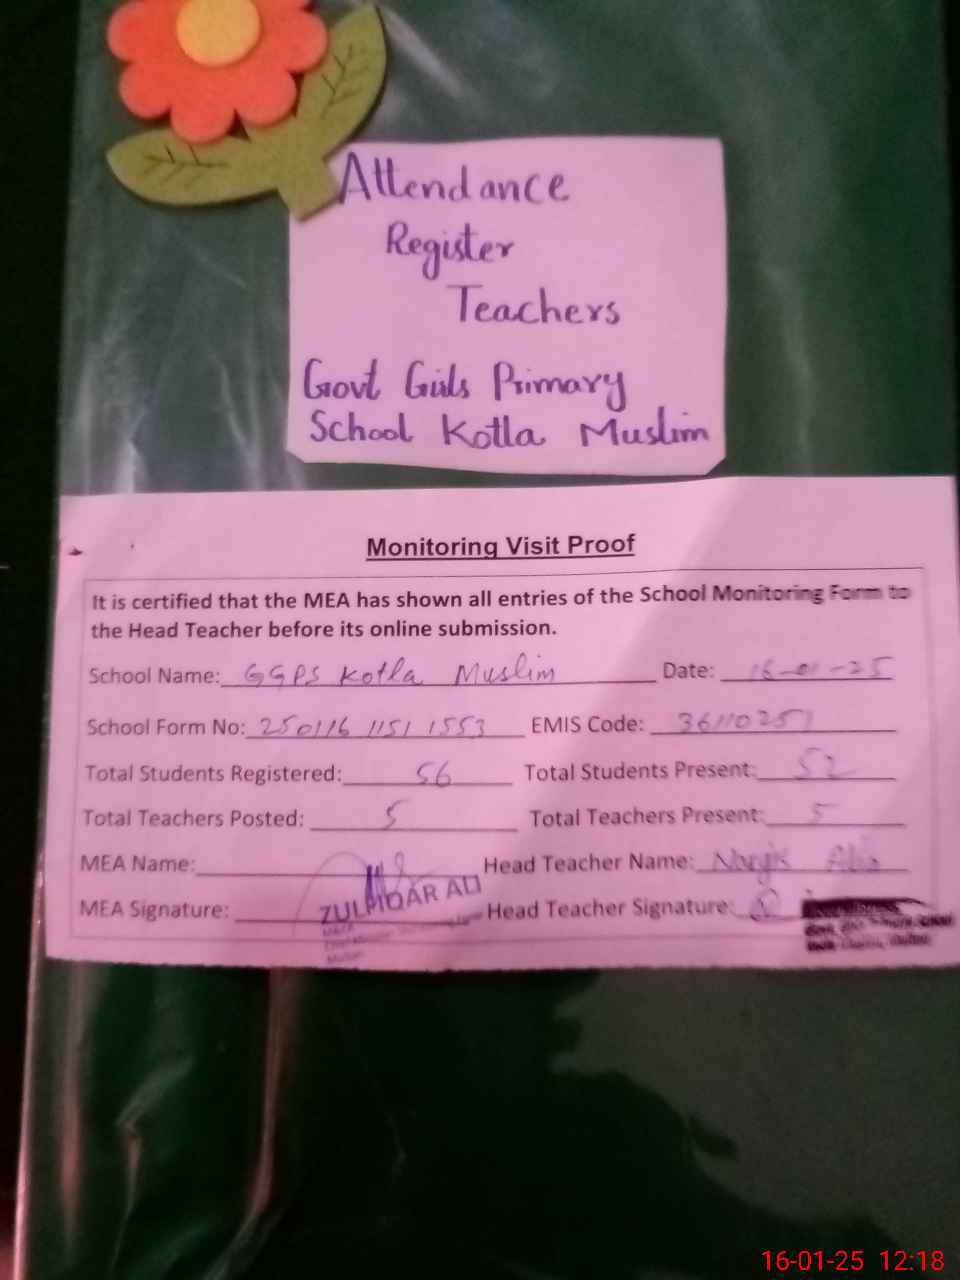 Attendance
Register
Teachers
Govt Girls Primary
School Kotla Muslim
Monitoring Visit Proof
It is certified that the MEA has shown all entries of the School Monitoring Form to
the Head Teacher before its online submission.
School Name: GGPS Kotla Muslim Date: 16-01-25
School Form No: 250116 1151 1553 EMIS Code: 36110251
Total Students Registered: 56 Total Students Present: 52
Total Teachers Posted: 5 Total Teachers Present: 5
MEA Name: Head Teacher Name:
MEA Signature: ZULFIQAR ALI Head Teacher Signature:
16-01-25 12:18